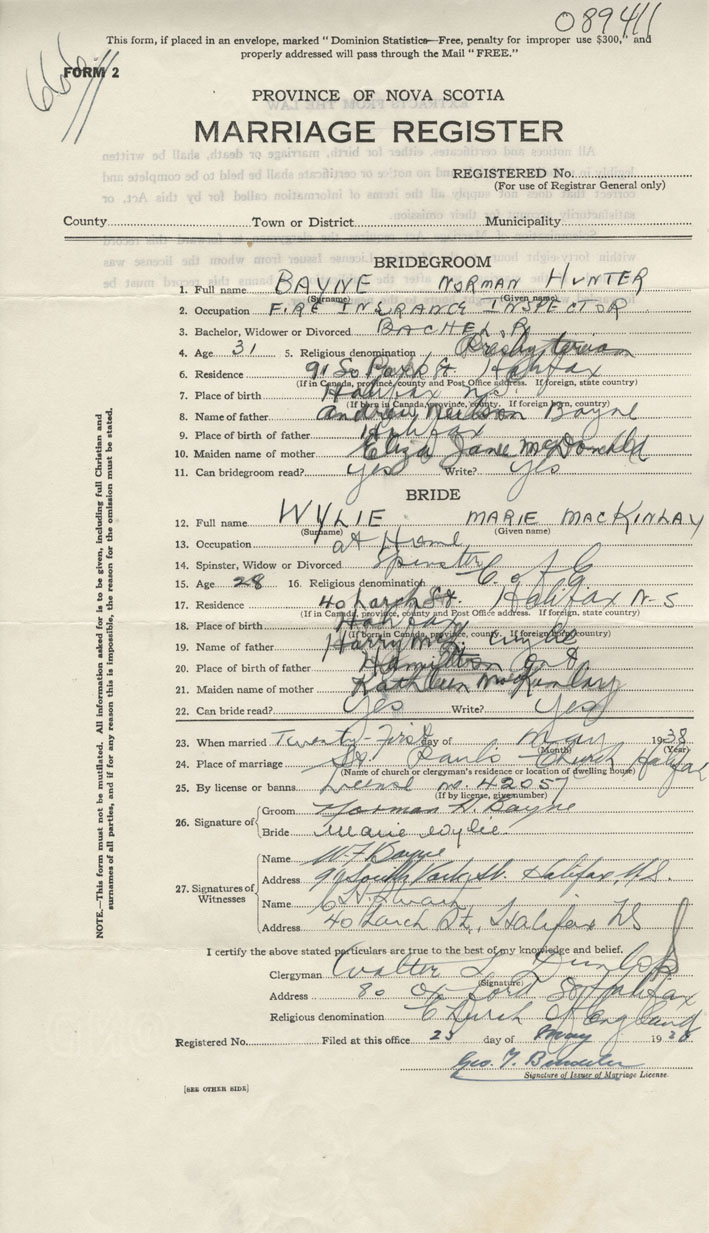 089411
This form, if placed in an envelope, marked "Dominion Statistics—Free, penalty for improper use $300," and
properly addressed will pass through the Mail "FREE."
FORM 2
PROVINCE OF NOVA SCOTIA
MARRIAGE REGISTER
REGISTERED No.
(For use of Registrar General only)
County Town or District Municipality
BRIDEGROOM
1. Full name BAYNE NORMAN HUNTER
(Surname) (Given name)
2. Occupation FIRE INSRANCE INSPECTOR
3. Bachelor, Widower or Divorced BACHELOR
4. Age 31 5. Religious denomination Presbyterian
6. Residence 91 So Park St Halifax
(If in Canada, province, county and Post Office address. If foreign, state country)
7. Place of birth Halifax NS
(If born in Canada, province, county. If foreign born, country)
8. Name of father Andrew Neilson Bayne
9. Place of birth of father Halifax
10. Maiden name of mother Eliza Jane McDonald
11. Can bridegroom read? Yes Write? Yes
BRIDE
12. Full name WYLIE MARIE MACKINLAY
(Surname) (Given name)
13. Occupation at Home
14. Spinster, Widow or Divorced Spinster
15. Age 28 16. Religious denomination C. of E.
17. Residence 40 Larch St. Halifax N-S
(If in Canada, province, county and Post Office address. If foreign, state country)
18. Place of birth Halifax
(If born in Canada, province, county. If foreign born, country)
19. Name of father Harry Wylie
20. Place of birth of father Hamilton
21. Maiden name of mother Kathleen MacKinlay
22. Can bride read? Yes Write? Yes
23. When married Twenty-First day of May 1938
(Month) (Year)
24. Place of marriage St Paul's Church Halifax
(Name of church or clergyman's residence or location of dwelling house)
25. By license or banns License no. 42057
(If by license, give number)
26. Signature of
Groom Norman H. Bayne
Bride Marie Wylie
27. Signatures of Witnesses
Name Bayne
Address 91 South Park St. Halifax, N.S.
Name
Address 40 Larch St., Halifax NS
I certify the above stated particulars are true to the best of my knowledge and belief.
Clergyman Walter L Dunlop
(Signature)
Address 80 Oxford St Halifax
Religious denomination Church of England
Registered No. Filed at this office 23 day of May 1938
Geo. T.
Signature of Issuer of Marriage License.
[SEE OTHER SIDE]
NOTE.—This form must not be mutilated. All information asked for is to be given, including full Christian and
surnames of all parties, and if for any reason this is impossible, the reason for the omission must be stated.